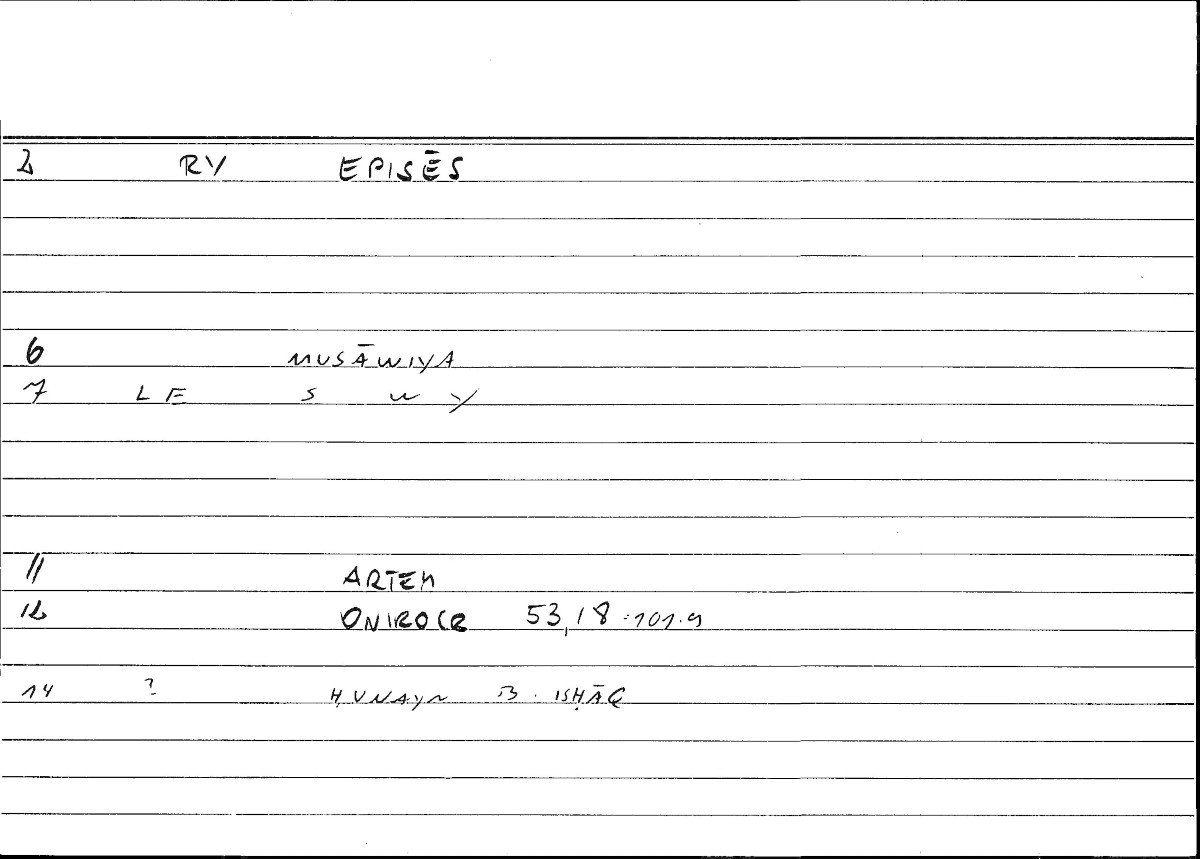 2 RY EPISĒS
6 MUSĀWIYA
7 LF S W Y
11 ARTEM
12 ONIROCR 53,18:101.9
14 ? ḤUNAYN B. ISḤĀQ